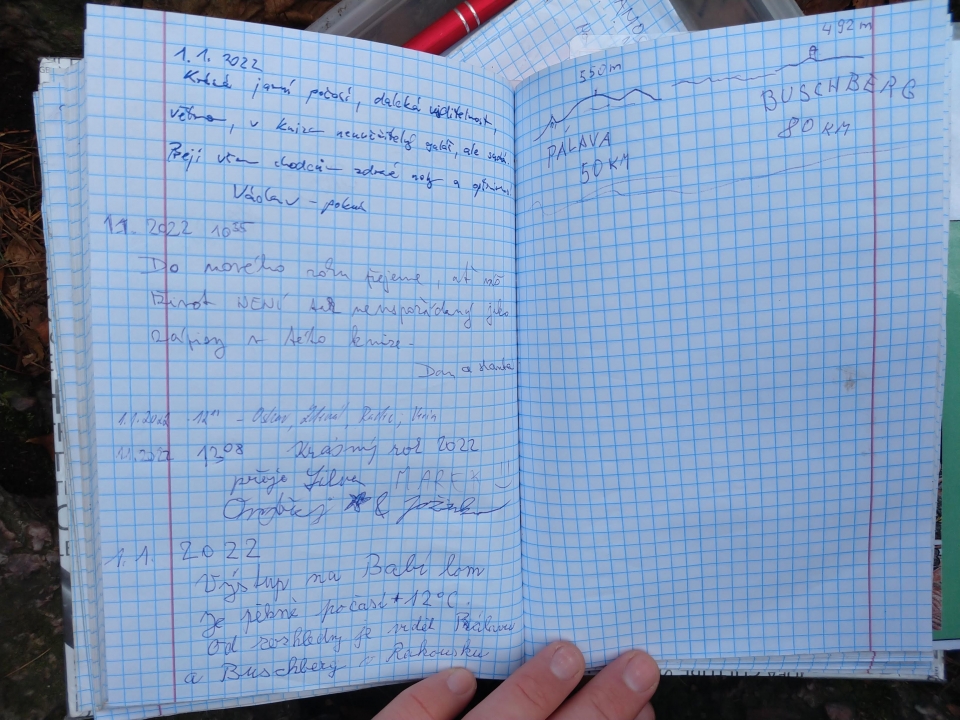 1.1. 2022
Krásné jarní počasí, daleká viditelnost,
větrno, v knize neuvěřitelný, ale
Přeji všem chodcům zdravé nohy a
Václav -
1.1. 2022 10³⁵
Do nového roku přejeme, ať náš
život NENÍ tak neuspořádaný jako
zápisy v této knize.
Dan a
1.1.2022 12
1.1.2022 13⁰⁸ Krásný rok 2022
přeje MAREK
Ondřej &
1.1. 2022
Výstup na Babí lom
Je pěkné počasí +12°C.
Od rozhledny je vidět Pálavu
a Buschberg v Rakousku
550 m
492 m
PÁLAVA
50 KM
BUSCHBERG
80 KM